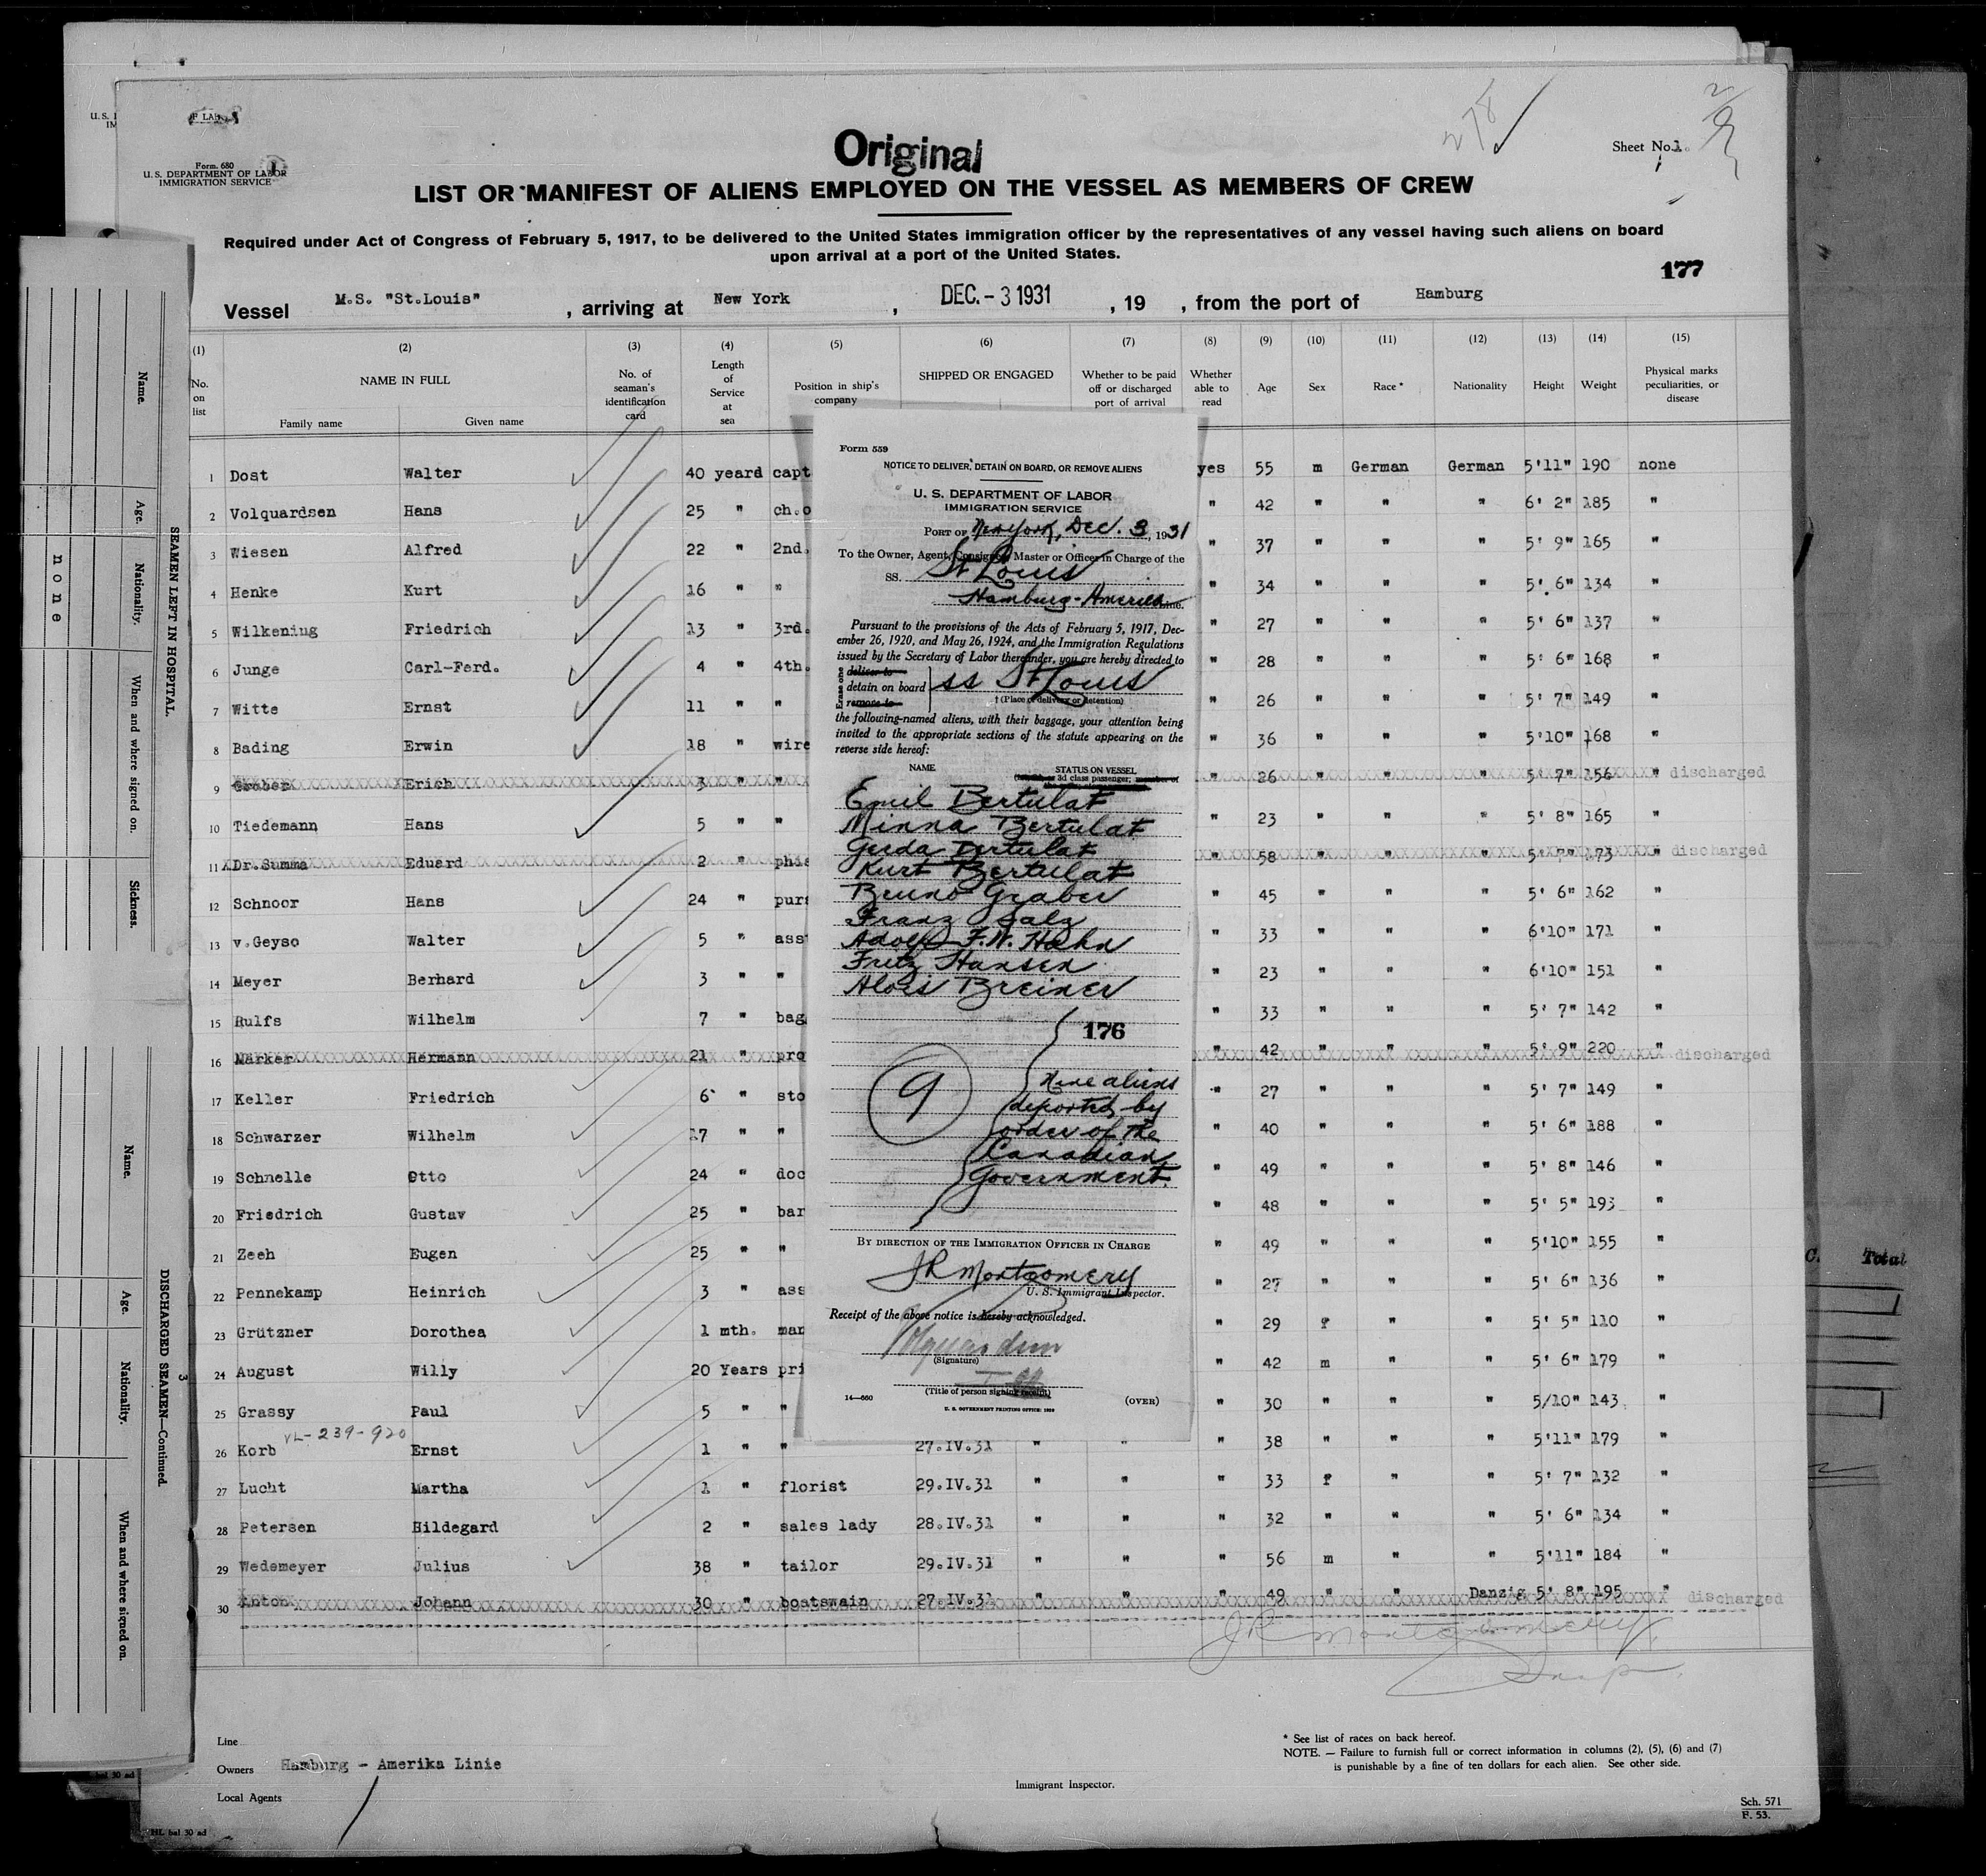 Original
Form. 680
U. S. DEPARTMENT OF LABOR
IMMIGRATION SERVICE
Sheet No. 1.
278
LIST OR MANIFEST OF ALIENS EMPLOYED ON THE VESSEL AS MEMBERS OF CREW
Required under Act of Congress of February 5, 1917, to be delivered to the United States immigration officer by the representatives of any vessel having such aliens on board
upon arrival at a port of the United States.
177
Vessel M.S. "St.Louis" , arriving at New York , DEC. - 3 1931 , 19 , from the port of Hamburg
(1) (2) (3) (4) (5) (6) (7) (8) (9) (10) (11) (12) (13) (14) (15)
No. on list
NAME IN FULL
Family name Given name
No. of seaman's identification card
Length of Service at sea
Position in ship's company
SHIPPED OR ENGAGED
Whether to be paid off or discharged port of arrival
Whether able to read
Age
Sex
Race *
Nationality
Height
Weight
Physical marks peculiarities, or disease
1 Dost Walter 40 yeard capt yes 55 m German German 5'11" 190 none
2 Volquardsen Hans 25 " ch.o " 42 " " " 6' 2" 185 "
3 Wiesen Alfred 22 " 2nd. " 37 " " " 5' 9" 165 "
4 Henke Kurt 16 " " " 34 " " " 5' 6" 134 "
5 Wilkening Friedrich 13 " 3rd. " 27 " " " 5' 6" 137 "
6 Junge Carl-Ferd. 4 " 4th. " 28 " " " 5' 6" 168 "
7 Witte Ernst 11 " " " 26 " " " 5' 7" 149 "
8 Bading Erwin 18 " wire " 36 " " " 5'10" 168 "
9 Graber Erich 3 " " " 26 " " " 5' 7" 156 " discharged
10 Tiedemann Hans 5 " " " 23 " " " 5' 8" 165 "
11 Dr.Summa Eduard 2 " phis " 58 " " " 5' 7" 173 " discharged
12 Schnoor Hans 24 " purs " 45 " " " 5' 6" 162 "
13 v.Geyso Walter 5 " ass " 33 " " " 6'10" 171 "
14 Meyer Berhard 3 " " " 23 " " " 6'10" 151 "
15 Rulfs Wilhelm 7 " bag " 33 " " " 5' 7" 142 "
16 Märker Hermann 21 " pro " 42 " " " 5' 9" 220 " discharged
17 Keller Friedrich 6 " sto " 27 " " " 5' 7" 149 "
18 Schwarzer Wilhelm 17 " " " 40 " " " 5' 6" 188 "
19 Schnelle Otto 24 " doc " 49 " " " 5' 8" 146 "
20 Friedrich Gustav 25 " bar " 48 " " " 5' 5" 193 "
21 Zeeh Eugen 25 " " " 49 " " " 5'10" 155 "
22 Pennekamp Heinrich 3 " ass " 27 " " " 5' 6" 136 "
23 Grützner Dorothea 1 mth. man " 29 f " " 5' 5" 110 "
24 August Willy 20 Years pri " 42 m " " 5' 6" 179 "
25 Grassy Paul 5 " " " 30 " " " 5/10" 143 "
VL-239-920
26 Korb Ernst 1 " " 27.IV.31 " " " 38 " " " 5'11" 179 "
27 Lucht Martha 1 " florist 29.IV.31 " " " 33 f " " 5' 7" 132 "
28 Petersen Hildegard 2 " sales lady 28.IV.31 " " " 32 " " " 5' 6" 134 "
29 Wedemeyer Julius 38 " tailor 29.IV.31 " " " 56 m " " 5'11" 184 "
30 Anton Johann 30 " boatswain 27.IV.31 " " " 49 " " Danzig 5' 8" 195 " discharged
JR Montgomery
Insp.
Form 559
NOTICE TO DELIVER, DETAIN ON BOARD, OR REMOVE ALIENS
U. S. DEPARTMENT OF LABOR
IMMIGRATION SERVICE
PORT OF New York, Dec. 3, 1931
To the Owner, Agent, Consignee, Master or Officer in Charge of the
SS. St Louis
Hamburg-America Line.
Pursuant to the provisions of the Acts of February 5, 1917, Dec-
ember 26, 1920, and May 26, 1924, and the Immigration Regulations
issued by the Secretary of Labor thereunder, you are hereby directed to
Erase one
deliver to
detain on board ss St Louis
remove to
† (Place of delivery or detention)
the following-named aliens, with their baggage, your attention being
invited to the appropriate sections of the statute appearing on the
reverse side hereof:
NAME STATUS ON VESSEL
3d class passenger, member of
Emil Bertulat
Minna Bertulat
Gerda Bertulat
Kurt Bertulat
Bruno Graber
Franz Salz
Adolf F.W. Hahn
Fritz Hansen
Alois Breiner
176
9
Nine aliens
deported by
order of the
Canadian
Government.
BY DIRECTION OF THE IMMIGRATION OFFICER IN CHARGE
JR Montgomery
U. S. Immigrant Inspector.
Receipt of the above notice is hereby acknowledged.
(Signature)
(Title of person signing receipt)
14—660
U. S. GOVERNMENT PRINTING OFFICE: 1930
(OVER)
Name.
Age.
Nationality.
When and where signed on.
Sickness.
none
SEAMEN LEFT IN HOSPITAL.
Name.
Age.
Nationality.
When and where signed on.
DISCHARGED SEAMEN—Continued.
3
C. Total
Line
Owners Hamburg - Amerika Linie
Local Agents
Immigrant Inspector.
* See list of races on back hereof.
NOTE. — Failure to furnish full or correct information in columns (2), (5), (6) and (7)
is punishable by a fine of ten dollars for each alien. See other side.
Sch. 571
F. 53.
HL bal 30 ad